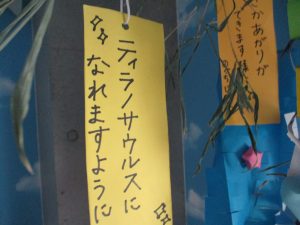 ティラノサウルスに
なれますように
さかあがりが
できます様に